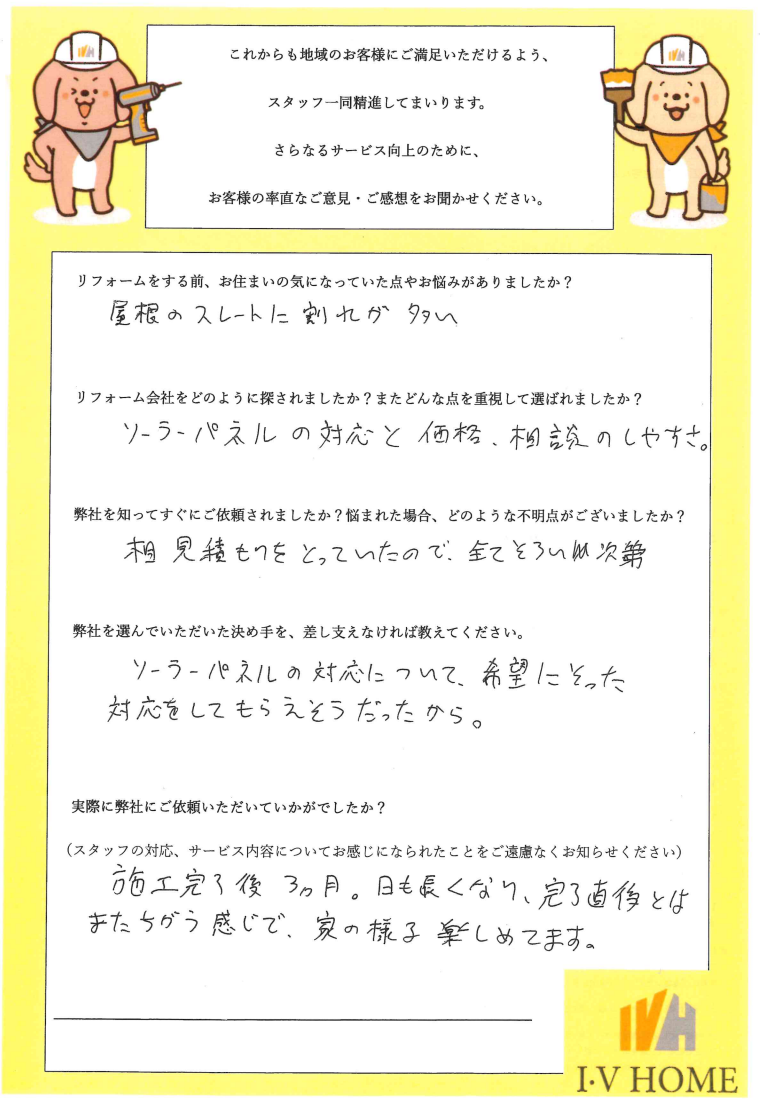 IVH
これからも地域のお客様にご満足いただけるよう、
スタッフ一同精進してまいります。
さらなるサービス向上のために、
お客様の率直なご意見・ご感想をお聞かせください。
IVH
リフォームをする前、お住まいの気になっていた点やお悩みがありましたか？
屋根のスレートに割れが多い
リフォーム会社をどのように探されましたか？またどんな点を重視して選ばれましたか？
ソーラーパネルの対応と価格、相談のしやすさ。
弊社を知ってすぐにご依頼されましたか？悩まれた場合、どのような不明点がございましたか？
相見積もりをとっていたので、全てそろい次第
弊社を選んでいただいた決め手を、差し支えなければ教えてください。
ソーラーパネルの対応について、希望にそった
対応をしてもらえそうだったから。
実際に弊社にご依頼いただいていかがでしたか？
（スタッフの対応、サービス内容についてお感じになられたことをご遠慮なくお知らせください）
施工完了後3ヵ月。日も長くなり、完了直後とは
またちがう感じで、家の様子楽しめてます。
IVH
I·V HOME